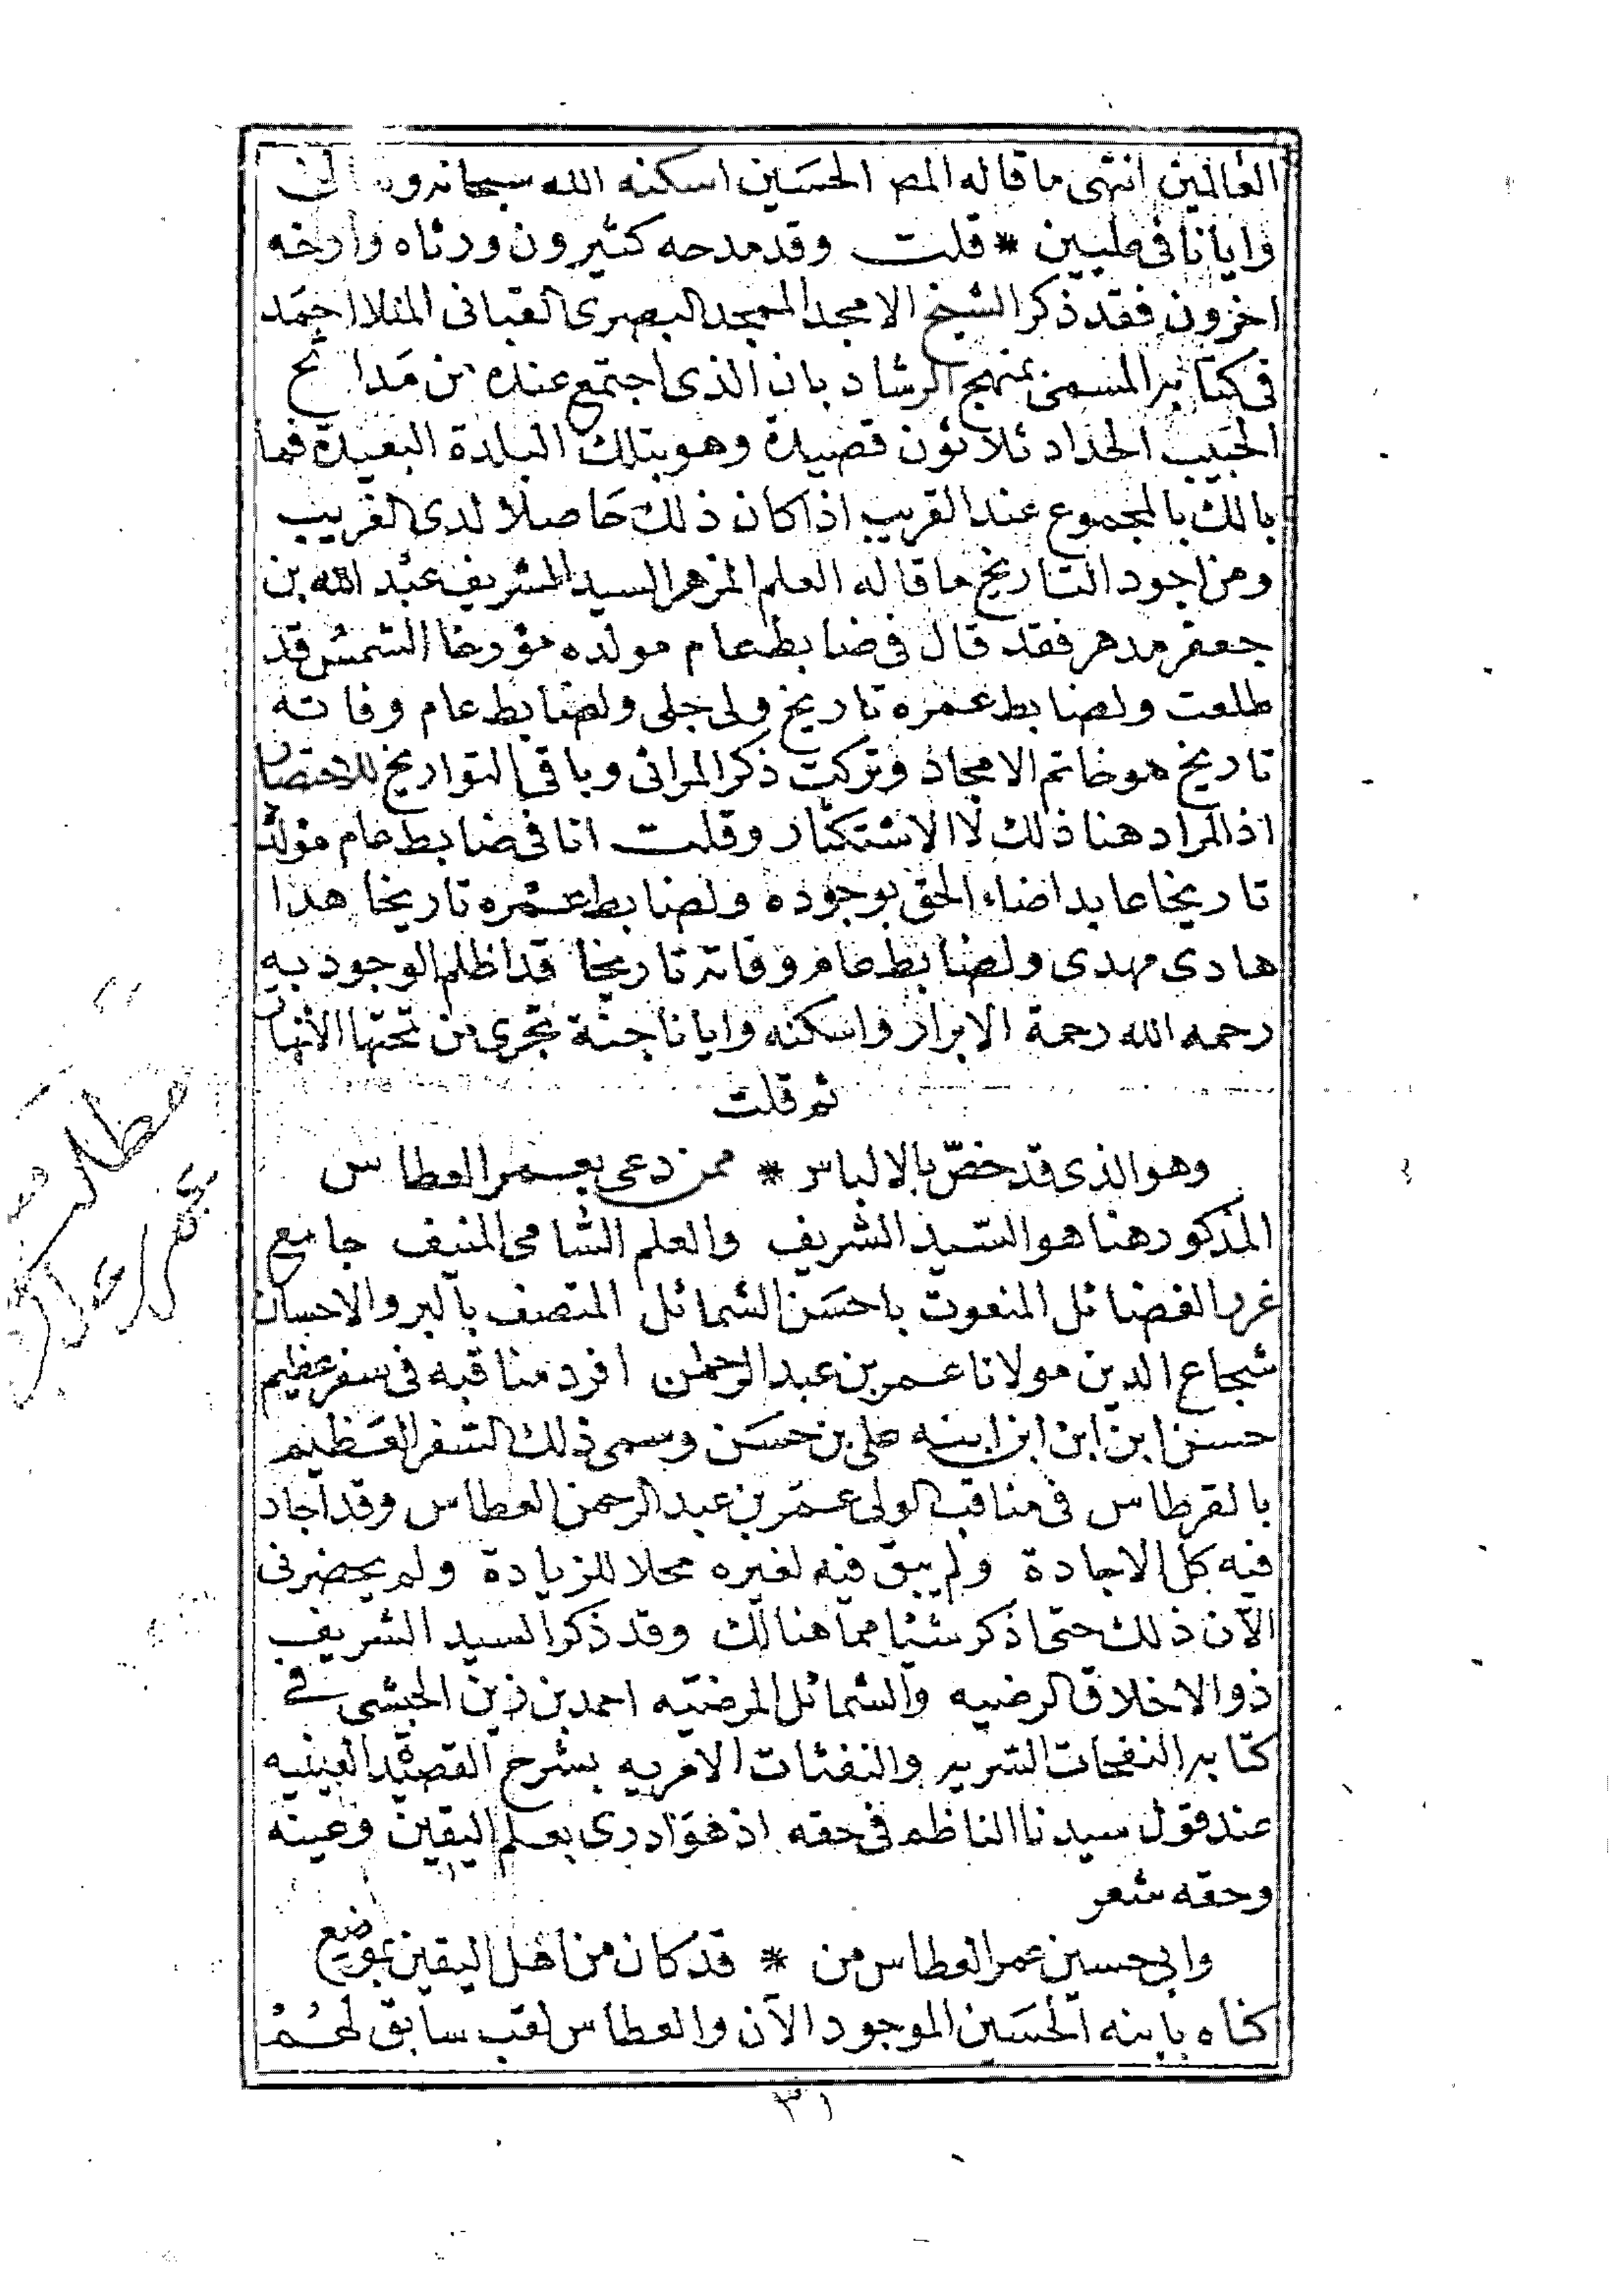 العالمين انتهى ما قاله المص الحسين اسكنه الله سبحانه و الى
وايانا في عليين * قلت وقد مدحه كثيرون ورثاه وارخه
اخرون فقد ذكر الشيخ الامجد الممجد البصرى القبانى المنلا احمد
فى كتابه المسمى بمنهج الرشاد بان الذى اجتمع عنده من مدائح
الحبيب الحداد ثلاثون قصيدة وهو بتلك البلدة البعيدة فما
بالك بالمجموع عند القريب اذا كان ذلك حاصلا لدى الغريب
ومن اجود التاريخ ما قاله العلم المزهر السيد الشريف عبد الله بن
جعفر مدهر فقد قال فى ضابط عام مولده مؤرخا الشمس قد
طلعت ولضابط عمره تاريخ ولى جلى ولضابط عام وفاته
تاريخ هو خاتم الامجاد وتركت ذكر المراثى وباقى التواريخ للاختصار
اذ المراد هنا ذلك لا الاستكثار وقلت انا فى ضابط عام مولده
تاريخا عابد اضاء الحق بوجوده ولضابط عمره تاريخا هذا
هادى مهدى ولضابط عام وفاته تاريخا قد اظلم الوجود به
رحمه الله رحمة الابرار واسكنه وايانا جنة تجرى من تحتها الأنهار
ثم قلت
وهو الذى قد خصّ بالالباس * ممن دعى بعمر العطاس
المذكور هنا هو السيد الشريف والعلم الشامخ المنيف جامع
غرر الفضائل المنعوت باحسن الشمائل المتصف بالبر والاحسان
شجاع الدين مولانا عمر بن عبد الرحمن افرد مناقبه فى سفر عظيم
حسن ابن ابن ابن ابنه على بن حسن وسمى ذلك السفر العظيم
بالقرطاس فى مناقب الولى عمر بن عبد الرحمن العطاس وقد اجاد
فيه كل الاجادة ولم يبق فيه لغيره محلا للزيادة ولم يحضرنى
الآن ذلك حتى اذكر شيئا مما هنالك وقد ذكر السيد الشريف
ذو الاخلاق الرضيه والشمائل المرضيه احمد بن زين الحبشى فى
كتابه النفحات السريه والنفثات الامريه بشرح القصيدة العينيه
عند قول سيدنا الناظم فى حقه اذ هو ادرى بعلم اليقين وعينه
وحقه شعر
وابى حسين عمر العطاس من * قد كان من اهل اليقين بموضع
كناه بابنه الحسين الموجود الآن والعطاس لقب سابق لهم
٣١
مطلب
عمر العطاس